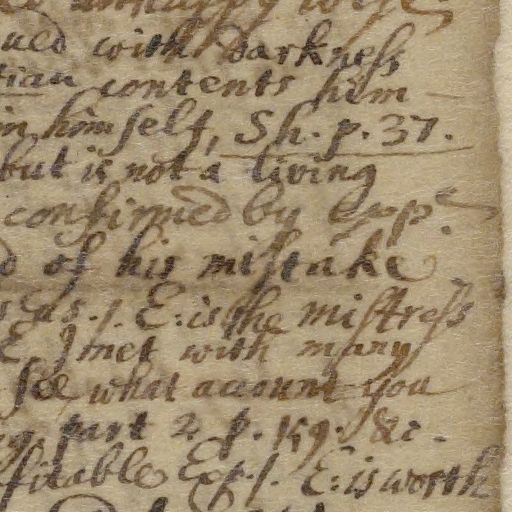 ued with darkness
tian contents him
in himself, Sh. p. 37.
but is not a living
confirmed by exp.
d of his mistake
s as. /. E: is the mistress
E. I met with many
see what account you
part 2 p. 159. &c.
fitable Exp. /. E: is worth